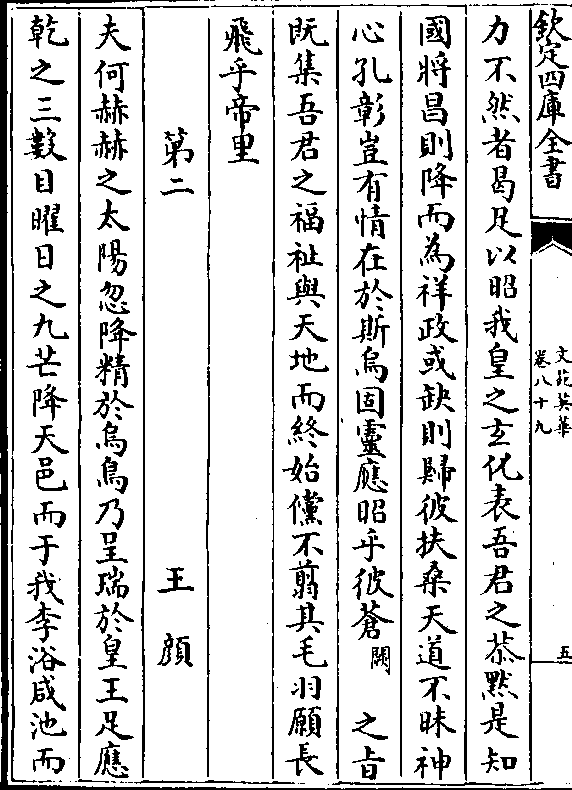 欽定四庫全書
文苑英華
卷八十九
五
力不然者曷足以昭我皇之玄化表吾君之恭黙是知
國將昌則降而為祥政或缺則歸彼扶桑天道不昧神
心孔彰豈有情在於斯烏固靈應昭乎彼蒼闕之旨
既集吾君之福祉與天地而終始儻不翦其毛羽願長
飛乎帝里
第二 王顔
夫何赫赫之太陽忽降精於烏鳥乃呈瑞於皇王足應
乾之三數目曜日之九芒降天邑而于我李浴咸池而